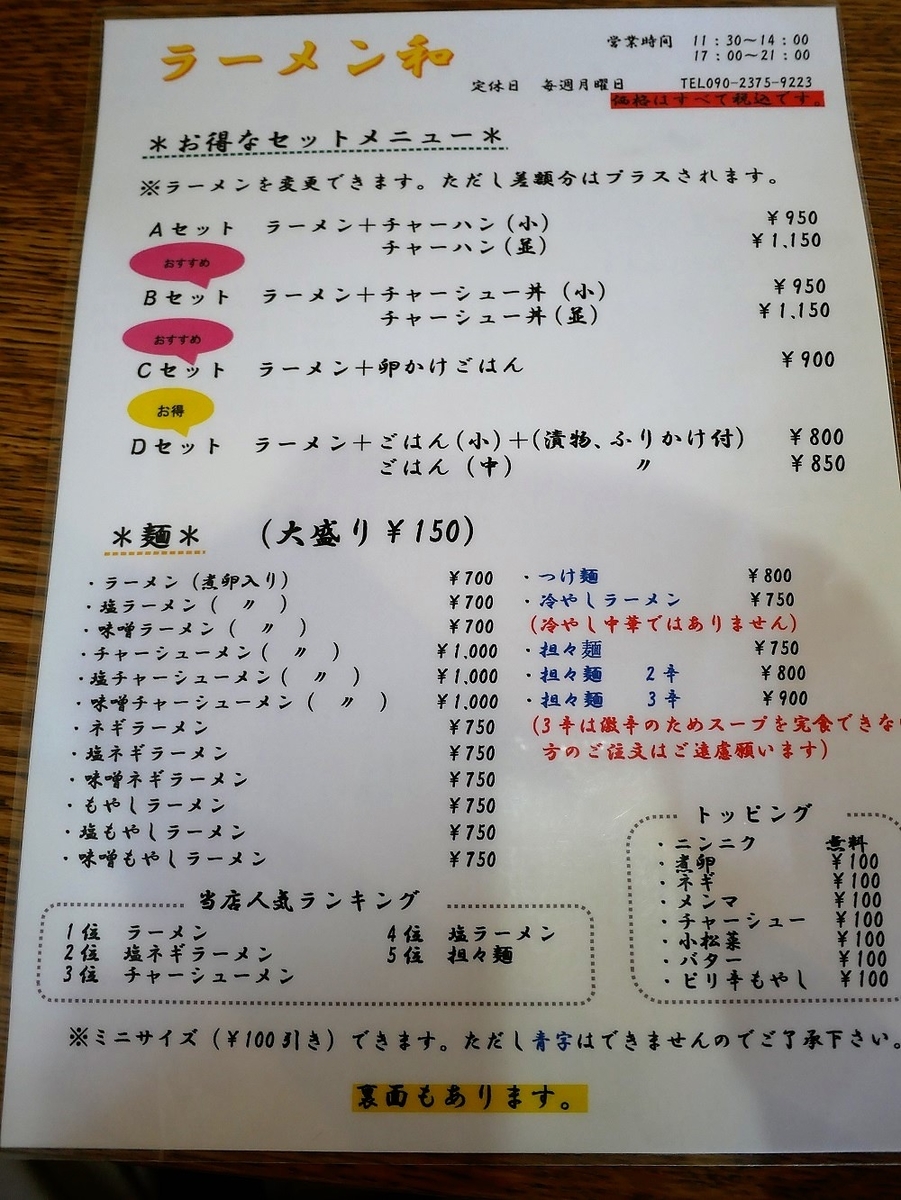 ラーメン和
営業時間 11:30~14:00
17:00~21:00
定休日 毎週月曜日 TEL090-2375-9223
価格はすべて税込です。
*お得なセットメニュー*
※ラーメンを変更できます。ただし差額分はプラスされます。
Aセット ラーメン+チャーハン(小) ¥950
チャーハン(並) ¥1,150
おすすめ
Bセット ラーメン+チャーシュー丼(小) ¥950
チャーシュー丼(並) ¥1,150
おすすめ
Cセット ラーメン+卵かけごはん ¥900
お得
Dセット ラーメン+ごはん(小)+(漬物、ふりかけ付) ¥800
ごはん(中) 〃 ¥850
*麺* (大盛り¥150)
・ラーメン(煮卵入り) ¥700
・塩ラーメン( 〃 ) ¥700
・味噌ラーメン( 〃 ) ¥700
・チャーシューメン( 〃 ) ¥1,000
・塩チャーシューメン( 〃 ) ¥1,000
・味噌チャーシューメン( 〃 ) ¥1,000
・ネギラーメン ¥750
・塩ネギラーメン ¥750
・味噌ネギラーメン ¥750
・もやしラーメン ¥750
・塩もやしラーメン ¥750
・味噌もやしラーメン ¥750
・つけ麺 ¥800
・冷やしラーメン ¥750
(冷やし中華ではありません)
・担々麺 ¥750
・担々麺 2辛 ¥800
・担々麺 3辛 ¥900
(3辛は激辛のためスープを完食できない
方のご注文はご遠慮願います)
トッピング
・ニンニク 無料
・煮卵 ¥100
・ネギ ¥100
・メンマ ¥100
・チャーシュー ¥100
・小松菜 ¥100
・バター ¥100
・ピリ辛もやし ¥100
当店人気ランキング
1位 ラーメン 4位 塩ラーメン
2位 塩ネギラーメン 5位 担々麺
3位 チャーシューメン
※ミニサイズ(¥100引き)できます。ただし青字はできませんのでご了承下さい。
裏面もあります。